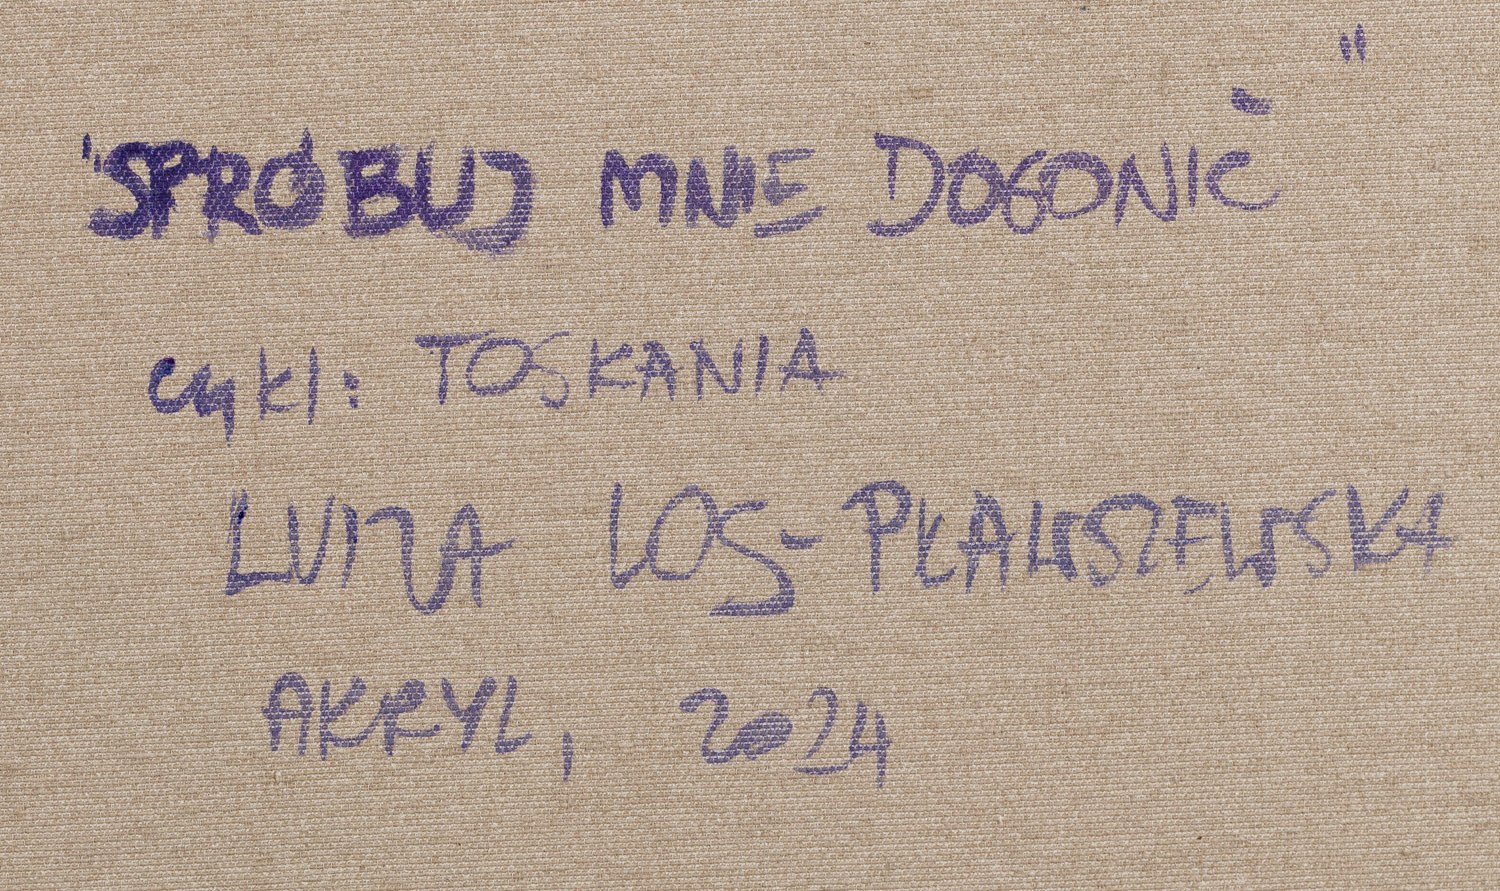 "SPRÓBUJ MNIE DOGONIĆ"
cykl: TOSKANIA
LUIZA LOS-PŁAWSZEWSKA
AKRYL, 2024